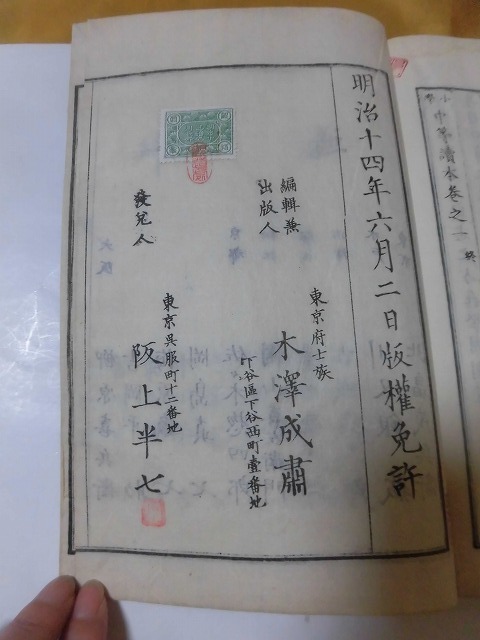 小學中等讀本卷之一 終
明治十四年六月二日版權免許
編輯兼
出版人
東京府士族
木澤成肅
下谷區下谷西町壹番地
發兌人
東京呉服町十二番地
阪上半七